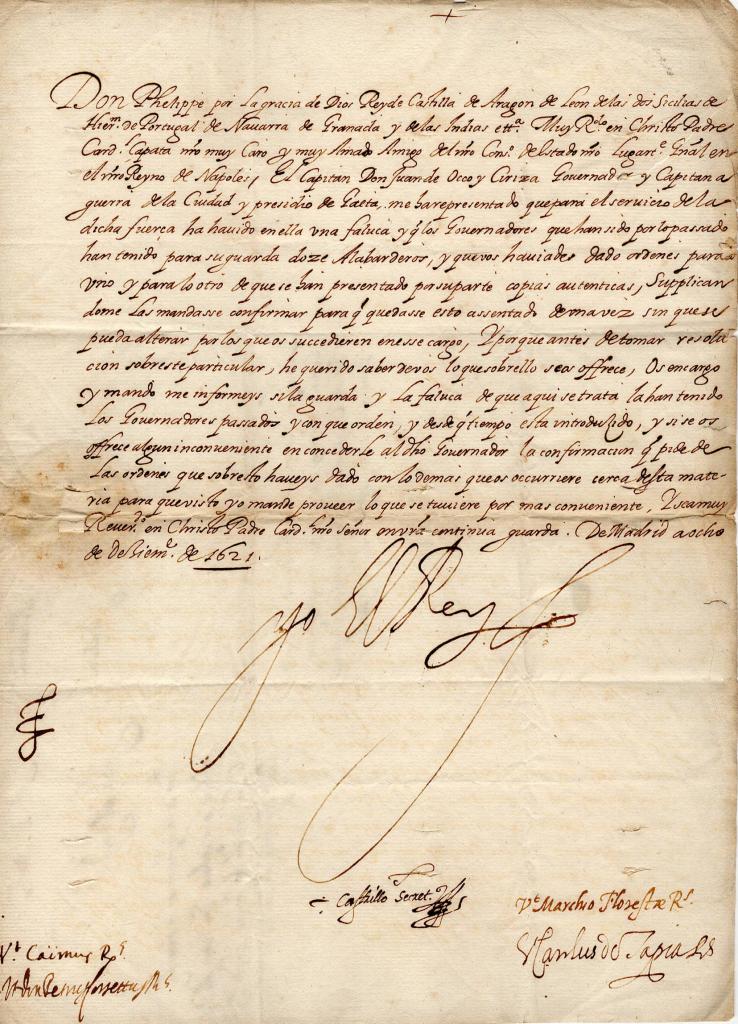 Don Phelippe por La gracia de Dios Rey de Castilla de Aragon de Leon de las dos Sicilias de
Hierm de Portugal de Nauarra de Granada y de las Indias ettª. Muy Rdo en Christo Padre
Card.l Çapata nro muy Caro y muy Amado Amigo del nro Conso de estado nro Lugarte Gnãl en
el nro Reyno de Napoles, El Capitan Don Juan de Occo y Ciriza Gouernador y Capitan a
guerra de la Ciudad y presidio de Gaeta, me ha representado que para el seruicio de la
dicha fuerça ha hauido en ella vna faluca y q los Gouernadores que han sido por lo passado
han tenido para su guarda doze Alabarderos, y que vos hauiades dado ordenes para
vno y para lo otro de que se han presentado por su parte copias autenticas, Supplican
dome Las mandasse confirmar para q quedasse esto assentado de vna vez sin que se
pueda alterar por los que os succedieren en esse cargo, Y porque antes de tomar resolu
cion sobre este particular, he querido saber de vos lo que sobrello se os offrece, Os encargo
y mando me informeys si la guarda y La faluca de que aqui se trata la han tenido
Los Gouernadores passados y con que orden, y desde q tiempo esta introduzido, y si se os
offrece algun inconueniente en concederle al dho Gouernador la confirmacion q pide de
Las ordenes que sobresto haueys dado con lo demas que os occurriere cerca desta mate-
ria para que visto yo mande proueer lo que se tuuiere por mas conueniente, Y sea muy
Reuer.do en Christo Padre Card.l nro señor en vrã continua guarda. De Madrid a ocho
de deziemͤ. de 1621.
yo El Rey
Castillo Secret.o
Vt Marchio Florestæ R.s
Vt Caimus R.s
Vt Carlus de Tapia Rs